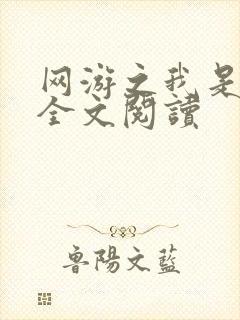 网游之我是
全文閱讀
鲁陽文藍